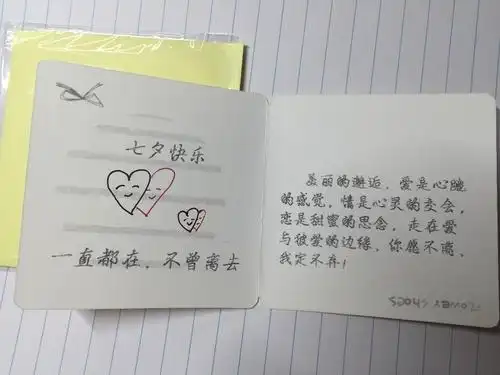 七夕快乐
一直都在，不曾离去
美丽的邂逅，爱是心脏
的感觉，情是心灵的交会，
恋是甜蜜的思念，走在爱
与彼爱的边缘，你愿不离，
我定不弃！